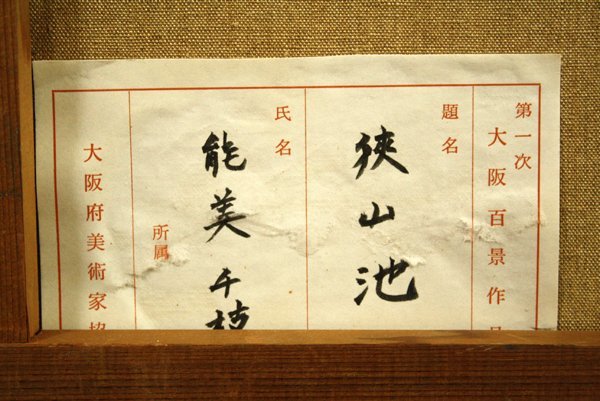 第一次
大阪百景作品
題名
狭山池
氏名
能美千枝
所属
大阪府美術家協